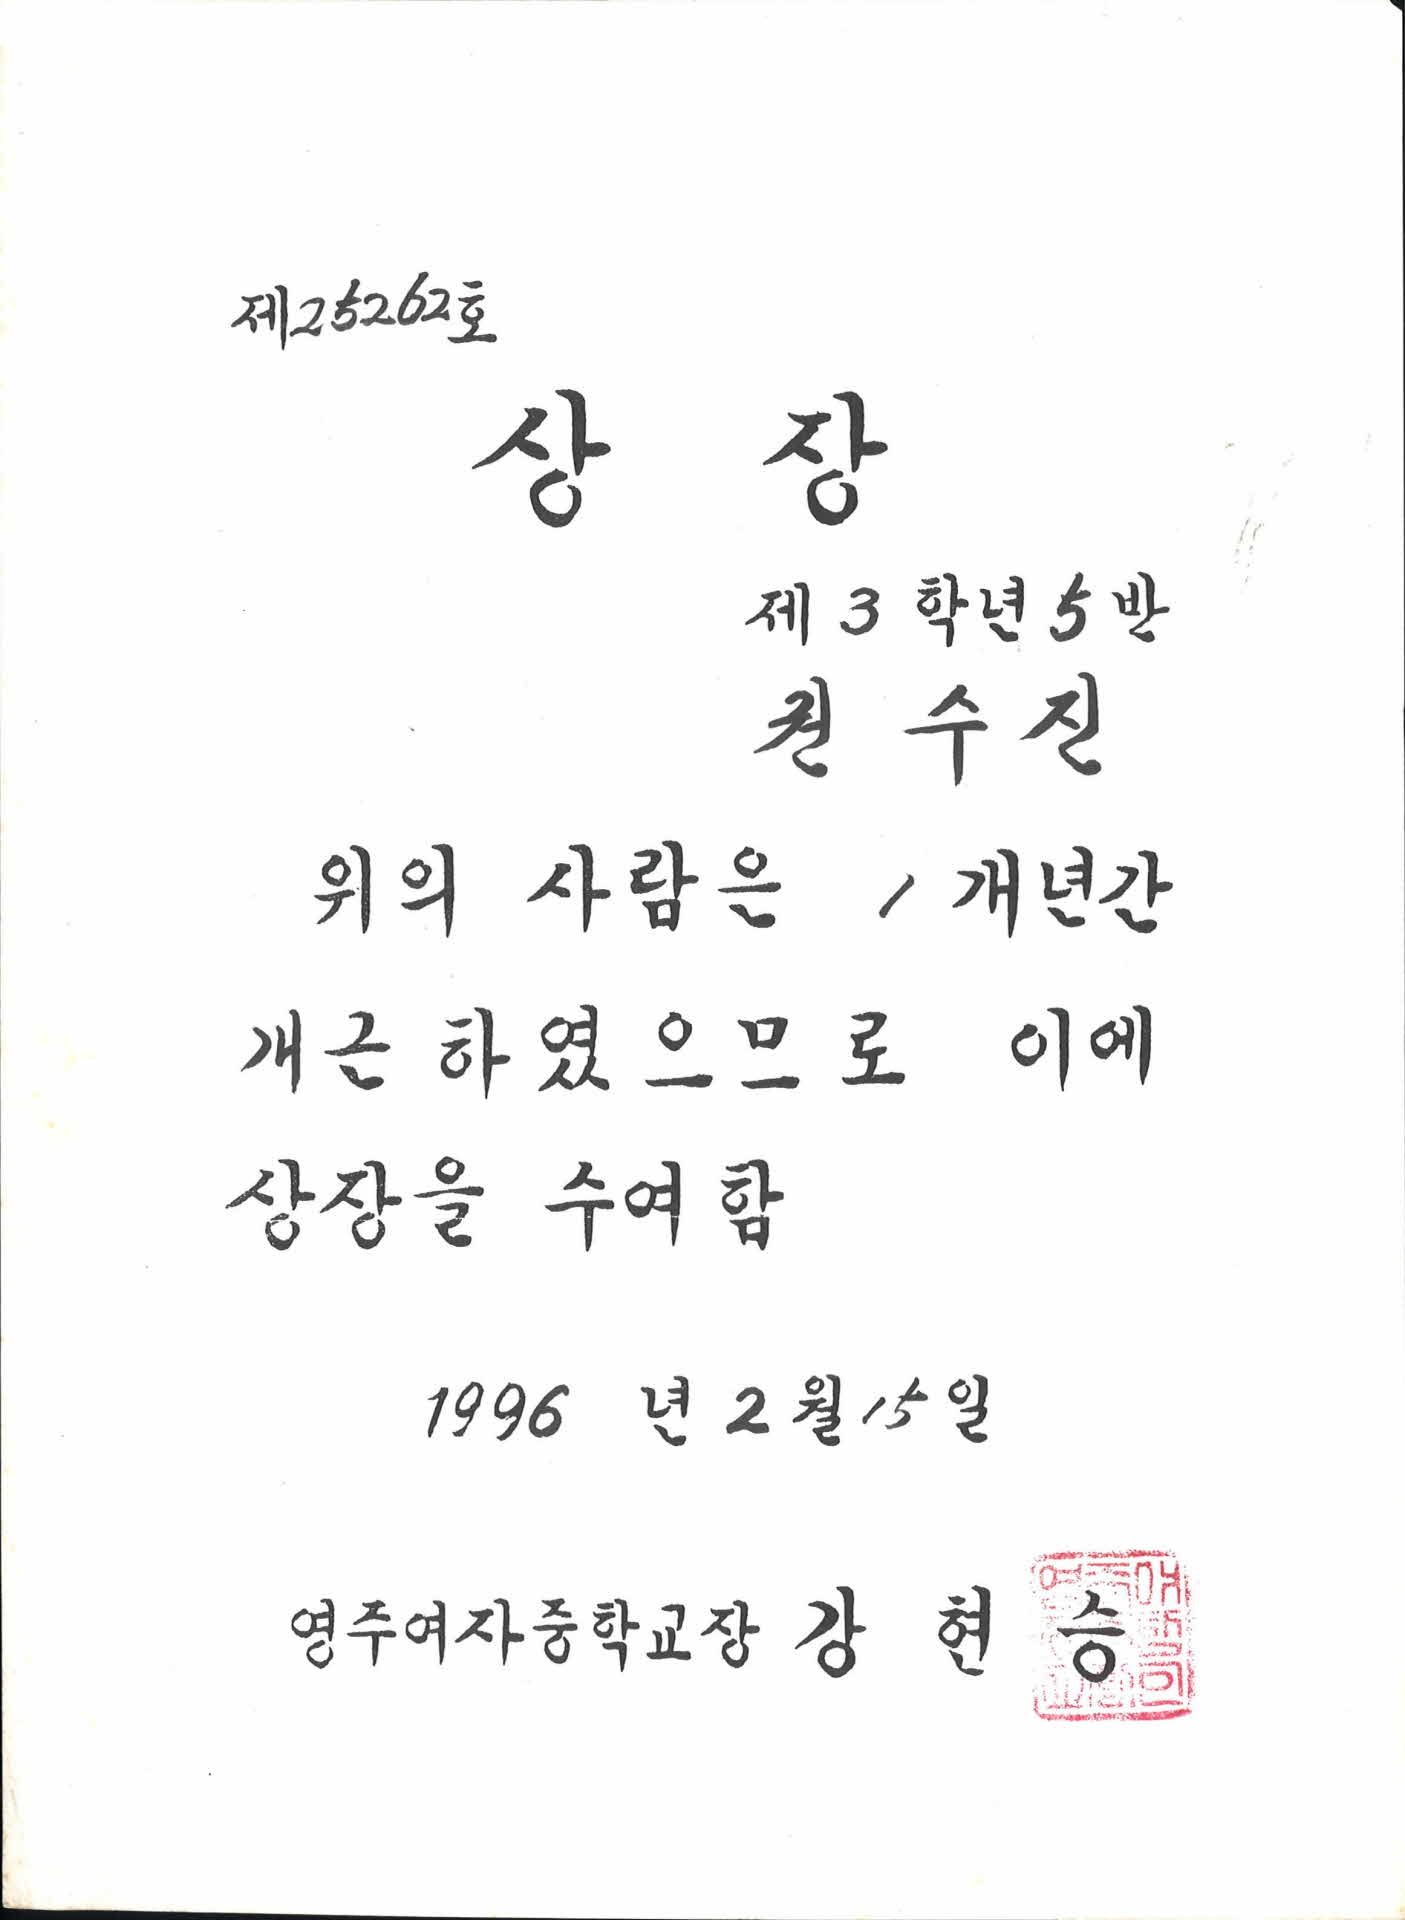 제25262호
상 장
제 3 학년 5 반
권 수 진
위의 사람은 1 개년간
개근 하였으므로 이에
상장을 수여함
1996 년 2 월 15 일
영주여자중학교장 강 현 승